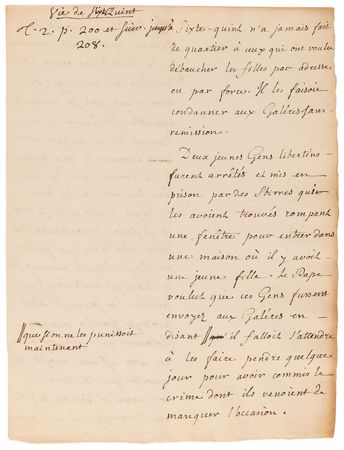 Vie de Sixt Quint
T. 2. p. 200 et suiv. jusqu'à
208.
Sixte-quint n'a jamais fait
de quartier à ceux qui ont voulu
débaucher les filles par adresse
ou par force. Il les faisoit
condanner aux Galéres sans
remission.
Deux jeunes Gens libertins
furent arrêtés et mis en
prison par des Sbirres qui
les avoient trouvés rompant
une fenêtre pour entrer dans
une maison où il y avoit
une jeune fille. Le Pape
voulut que ces Gens fussent
envoyez aux Galéres en
disant // il falloit s'attendre
à les faire pendre quelque
jour pour avoir commis le
crime dont ils venoient de
manquer l'occasion.
//que si on ne les punissoit
maintenant